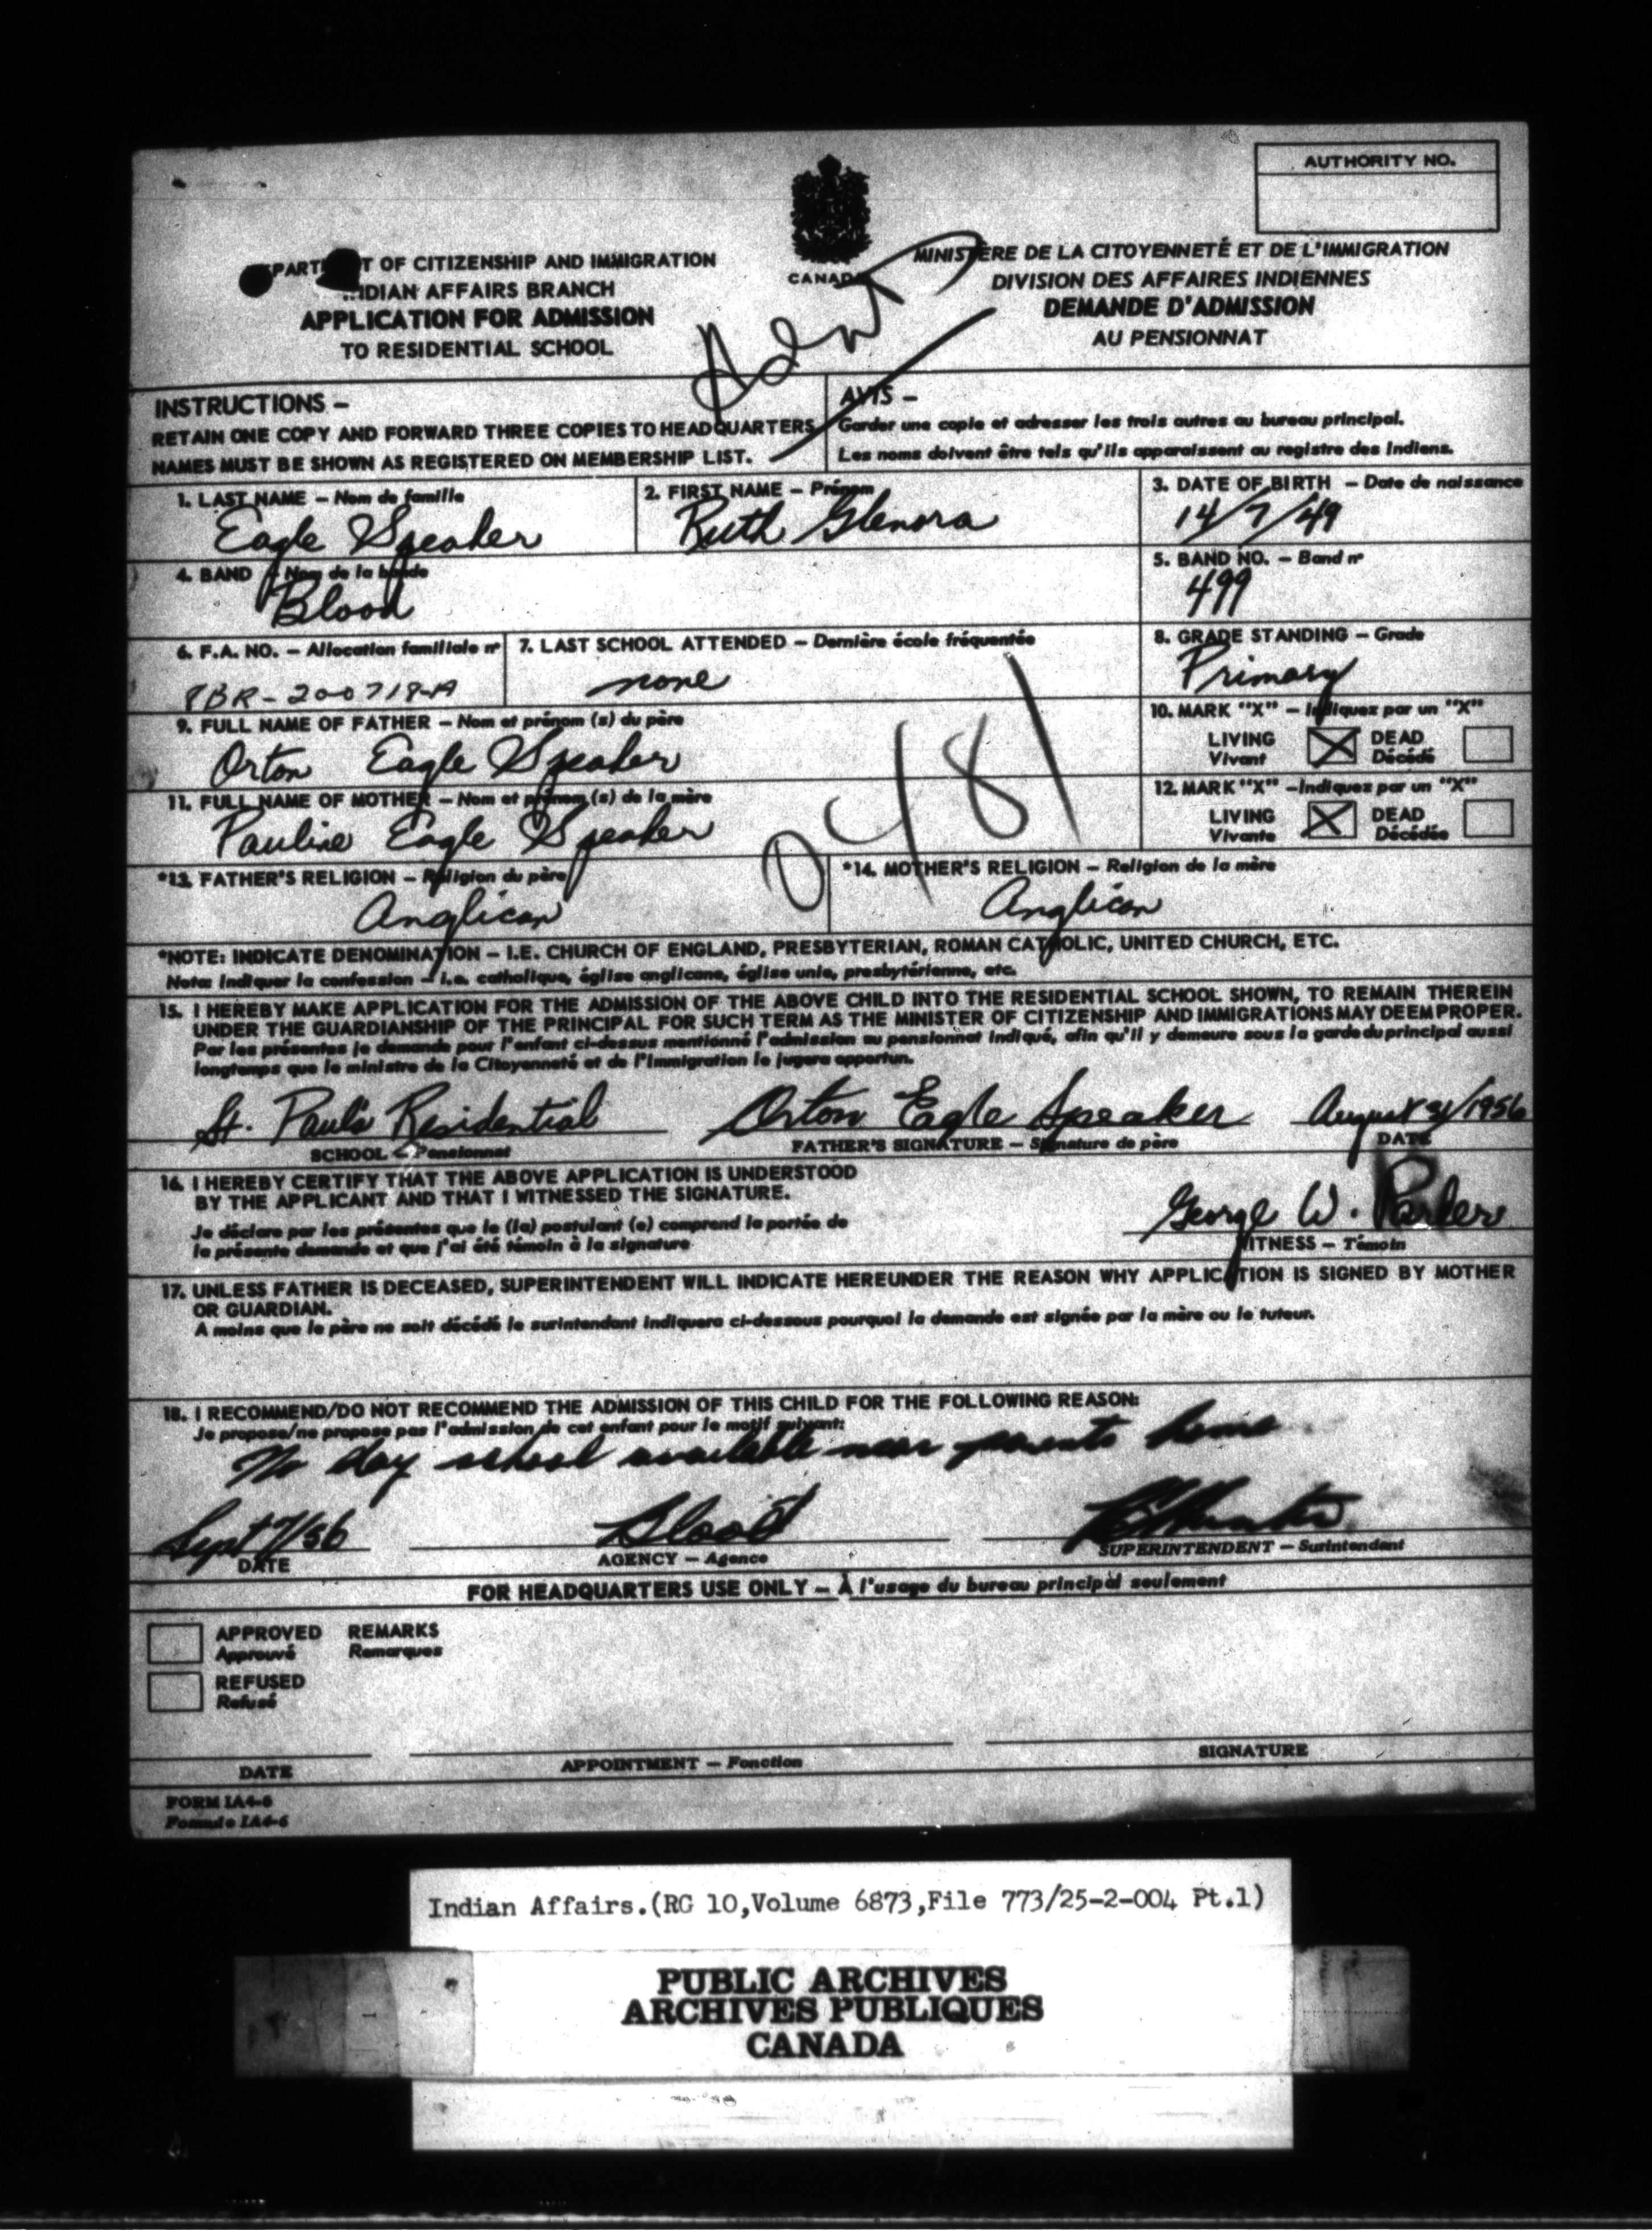 AUTHORITY NO.
CANADA
T OF CITIZENSHIP AND IMMIGRATION
INDIAN AFFAIRS BRANCH
APPLICATION FOR ADMISSION
TO RESIDENTIAL SCHOOL
MINISTÈRE DE LA CITOYENNETÉ ET DE L'IMMIGRATION
DIVISION DES AFFAIRES INDIENNES
DEMANDE D'ADMISSION
AU PENSIONNAT
INSTRUCTIONS –
RETAIN ONE COPY AND FORWARD THREE COPIES TO HEADQUARTERS
NAMES MUST BE SHOWN AS REGISTERED ON MEMBERSHIP LIST.
AVIS –
Garder une copie et adresser les trois autres au bureau principal.
Les noms doivent être tels qu'ils apparaissent au registre des Indiens.
1. LAST NAME – Nom de famille
Eagle Speaker
2. FIRST NAME – Prénom
Ruth Glenora
3. DATE OF BIRTH – Date de naissance
14/7/49
4. BAND – Nom de la bande
Blood
5. BAND NO. – Band nº
499
6. F.A. NO. – Allocation familiale nº
7. LAST SCHOOL ATTENDED – Dernière école fréquentée
none
8. GRADE STANDING – Grade
Primary
9. FULL NAME OF FATHER – Nom et prénom (s) du père
Orton Eagle Speaker
10. MARK "X" – Indiquez par un "X"
LIVING X DEAD
Vivant Décédé
11. FULL NAME OF MOTHER – Nom et prénom (s) de la mère
Pauline Eagle Speaker
12. MARK "X" – Indiquez par un "X"
LIVING X DEAD
Vivante Décédée
0481
*13. FATHER'S RELIGION – Religion du père
Anglican
*14. MOTHER'S RELIGION – Religion de la mère
Anglican
*NOTE: INDICATE DENOMINATION – I.E. CHURCH OF ENGLAND, PRESBYTERIAN, ROMAN CATHOLIC, UNITED CHURCH, ETC.
Nota: Indiquer la confession – i.e. catholique, église anglicane, église unie, presbytérienne, etc.
15. I HEREBY MAKE APPLICATION FOR THE ADMISSION OF THE ABOVE CHILD INTO THE RESIDENTIAL SCHOOL SHOWN, TO REMAIN THEREIN
UNDER THE GUARDIANSHIP OF THE PRINCIPAL FOR SUCH TERM AS THE MINISTER OF CITIZENSHIP AND IMMIGRATIONS MAY DEEM PROPER.
Par les présentes je demande pour l'enfant ci-dessus mentionné l'admission au pensionnat indiqué, afin qu'il y demeure sous la garde du principal aussi
longtemps que le ministre de la Citoyenneté et de l'Immigration le jugera opportun.
St. Paul's Residential Orton Eagle Speaker August 31/1956
SCHOOL – Pensionnat FATHER'S SIGNATURE – Signature de père DATE
16. I HEREBY CERTIFY THAT THE ABOVE APPLICATION IS UNDERSTOOD
BY THE APPLICANT AND THAT I WITNESSED THE SIGNATURE.
Je déclare par les présentes que le (la) postulant (e) comprend la portée de
la présente demande et que j'ai été témoin à la signature
George W. Parker
WITNESS – Témoin
17. UNLESS FATHER IS DECEASED, SUPERINTENDENT WILL INDICATE HEREUNDER THE REASON WHY APPLICATION IS SIGNED BY MOTHER
OR GUARDIAN.
A moins que le père ne soit décédé le surintendant indiquera ci-dessous pourquoi la demande est signée par la mère ou le tuteur.
18. I RECOMMEND/DO NOT RECOMMEND THE ADMISSION OF THIS CHILD FOR THE FOLLOWING REASON:
Je propose/ne propose pas l'admission de cet enfant pour le motif suivant:
No day school available near parents home
Sept 7/56 Blood
DATE AGENCY – Agence SUPERINTENDENT – Surintendant
FOR HEADQUARTERS USE ONLY – À l'usage du bureau principal seulement
APPROVED REMARKS
Approuvé Remarques
REFUSED
Refusé
DATE APPOINTMENT – Fonction SIGNATURE
FORM IA4-6
Formule IA4-6
Indian Affairs.(RG 10,Volume 6873,File 773/25-2-004 Pt.1)
PUBLIC ARCHIVES
ARCHIVES PUBLIQUES
CANADA